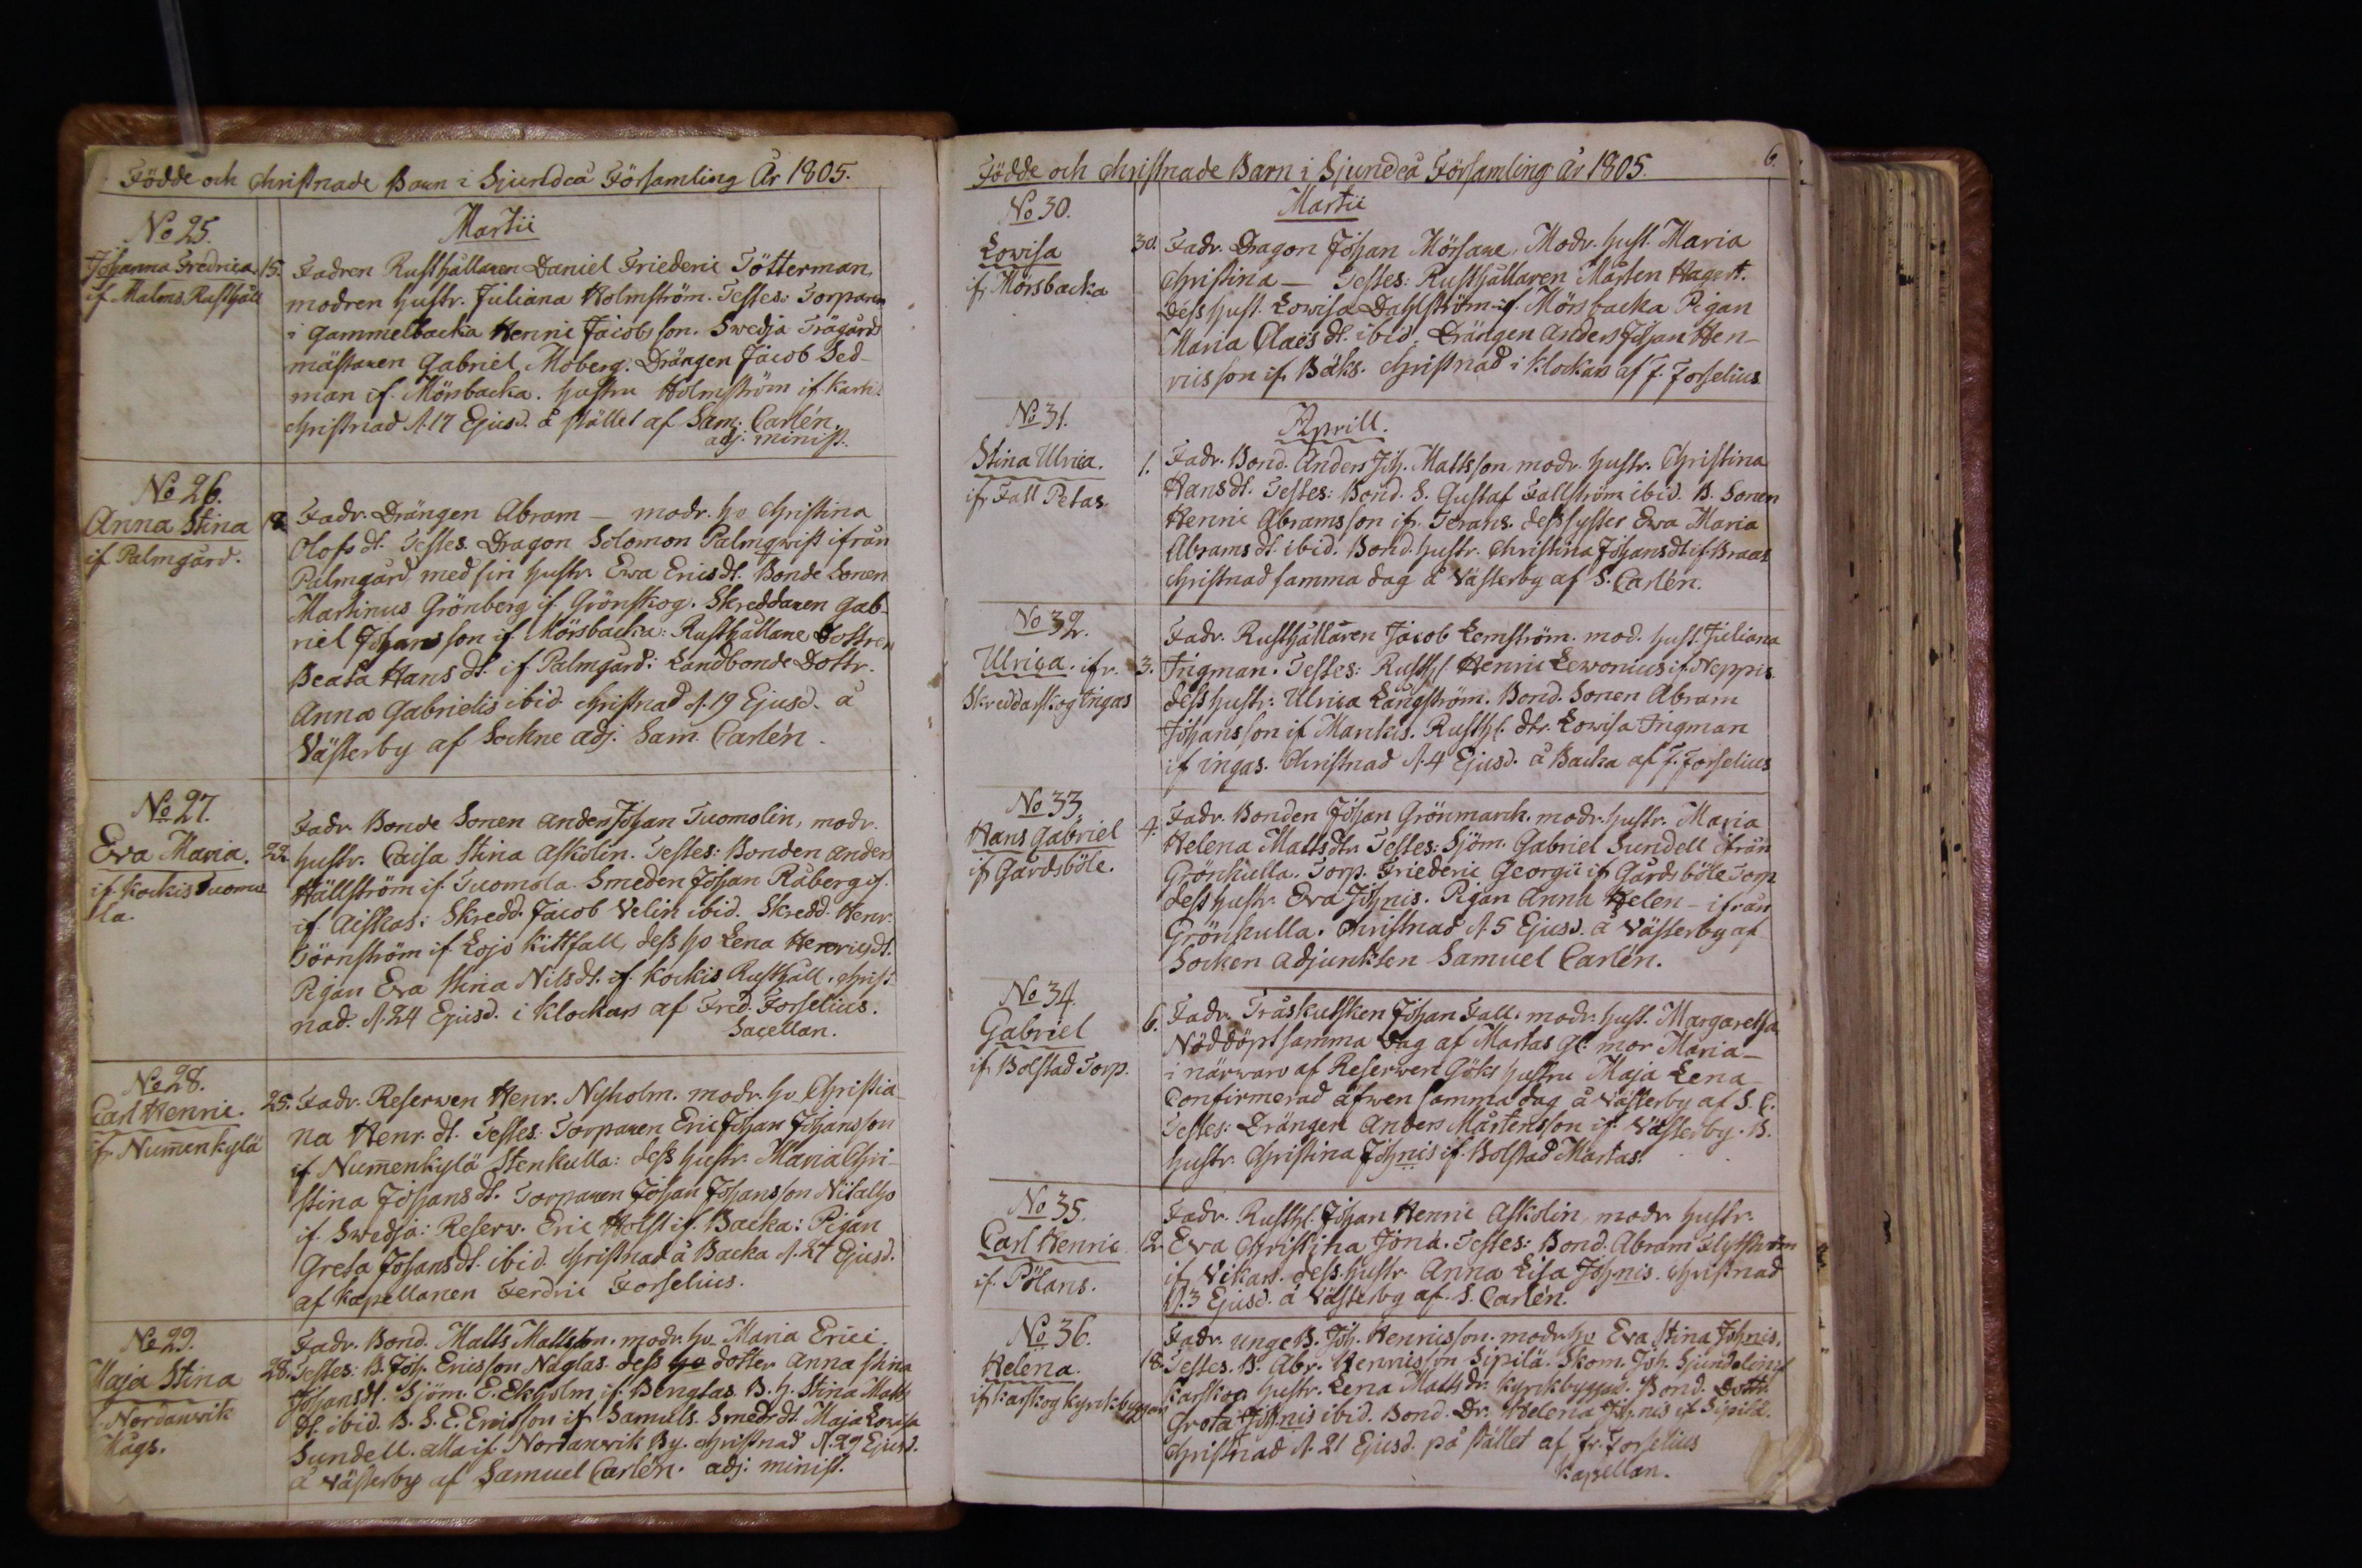 Födde och Christnade Barn i Sjundeå Församling År 1805.
No 25.
Martii
Johanna Fredrica
if. Malms Rusthåll
15. Fadren Rusthållaren Daniel Friederic Tötterman,
modren hustr. Juliana Holmström. Testes: Torparen
i Gammelbacka Henric Jacobsson. Swedja Trägårds
mästaren Gabriel Moberg. Drängen Jacob Sed-
man if. Mörsbacka. hustru Holmström if.
Christnad d. 17 Ejusd. å stället af Sam. Carlén.
adj. minist.
No 26.
Anna Stina
if Palmgård.
18. Fadr. Drängen Abram — modr. ho Christina
Olofs dt. Testes. Dragon Solomon Palmqwist ifrån
Palmgård med sin hustr. Ewa Erics dt. Bonde Sonen
Martinus Grönberg if. Grönskog. Skreddaren Gab-
riel Johansson if. Mörsbacka: Rusthållare Dottren
Beata Hans dt. if Palmgård: Landbonde Dottr.
Anna Gabrielis ibid. Christnad d. 19 Ejusd. å
Västerby af Sockne adj. Sam. Carlén.
No 27.
Eva Maria.
if. Kockis Tuomo
la.
22. Fadr. Bonde Sonen Anders Johan Tuomolin, modr.
hustr. Caisa Stina Askolin. Testes: Bonden Anders
Hällström if. Tuomola. Smeden Johan Råberg if.
if. Aiskas: Skredd. Jacob Velin ibid. Skredd. Henr.
Törnström if. Lojo Kittfall, dess ho Lena Henrics dt.
Pigan Eva Stina Nils dt. if. Kockis Rusthåll. Christ-
nad. d. 24 Ejusd. i Klockars af Fred. Forselius.
Sacellan.
No 28.
Carl Henric.
fr. Num̄enkylä
25. Fadr. Reserwen Henr. Nyholm. modr. ho Christia-
na Henr. dt. Testes: Torparen Eric Johan Johansson
if Num̄enkylä Stenkulla: dess hustr. Maria Chri-
stina Johans dt. Torparen Johan Johansson
if. Swedja: Reserv. Eric Holst if. Backa: Pigan
Greta Johans dt. ibid. Christnad å Backa d. 27 Ejusd.
af Kapellanen Ferdric Forselius.
No 29.
Maja Stina
Nordanwik
Kågs.
28. Fadr. Bond. Matts Mattsson. modr. ho Maria Erici.
Testes: B. Joh. Ericsson Näglas. dess ho dotter Anna Stina
Johans dt. Sjöm. E. Ekholm if. Benglas. B. h. Stina Matts
dt. ibid. B. S. E. Ericsson if Samuls. Smeds dt. Maja Lowisa
Sundell. alla if. Nordanwik By. Christnad d. 29 Ejusd.
å Västerby af Samuel Carlén. adj. minist.
Födde och Christnade Barn i Sjundeå Församling År 1805.
6.
No 30.
Martii
Lowisa
if. Mörsbacka
30. Fadr. Dragon Johan Mörsare, Modr. hust. Maria
Christina — Testes: Rusthållaren Mårten Hagert.
dess hust. Lowisa Dahlström if. Mörsbacka Pigan
Maria Claës dt. ibid. Drängen Anders Johan Hen-
ricsson if. Bäks. Christnad i Klockars af F. Forselius
No 31.
Aprill.
Stina Ulrica.
ifr. Fall Petas.
1. Fadr. Bond. Anders Joh. Mattsson modr. hustr. Christina
Hans dt. Testes: Bond. S. Gustaf Fallström ibid. B. Sonen
Henric Abramsson ifr. Terans. dess syster Ewa Maria
Abrams dt. ibid. Bond. hustr. Christina Johans dt if. Braas
Christnad samma dag å Västerby af S. Carlén.
No 32.
Ulrica. ifr.
Skreddarskog Ingas
3. Fadr. Rusthållaren Jacob Lemström. mod. hust. Juliana
Ingman. Testes: Rusthl. Henric Lewonius if. Neppris.
dess hustr: Ulrica Långström. Bond. Sonen Abram
Johansson if Mankis. Rusthl. dtr. Lowisa Ingman
if ingas. Christnad d. 4 Ejusd. å Backa af F. Forselius
No 33.
Hans Gabriel
if Gårdsböle.
4. Fadr. Bonden Johan Grönmarck. modr. hustr. Maria
Helena Matts dtr. Testes: Sjöm. Gabriel Sundell ifrån
Grönkulla. Torp. Friederic Georgii if Gårdsböle Torp
dess hustr. Eva Johnis. Pigan Anna Helen - ifrån
Grönkulla. Christnad d. 5 Ejusd. å Västerby af
Socken Adjunkten Samuel Carlén.
No 34.
Gabriel
if Bolstad Torp.
6. Fadr. Träskutsken Johan Fall. modr. hust. Margaretha
Nöddöpt samma Dag af Martas gl. mor Maria —
i närwaro af Reserwen Göks hustru Maja Lena
Confirmerad äfwen samma dag å Västerby af S. C.
Testes: Drängen Anders Mårtensson if Västerby. B.
hustr. Christina Johnis if. Bolstad Martas.
No 35.
Carl Henric
if. Pölans.
12. Fadr. Rusthl. Johan Henric Askolin, modr. hustr.
Eva Christina Jona. Testes: Bond. Abram Flythström
if Vikars. dess hustr. Anna Lisa Johnis. Christnad
d. 3 Ejusd. å Västerby af. S. Carlén.
No 36.
Helena.
if Karskog Kyrckbyggars
18. Fadr. unge B. Joh. Henricsson. modr. ho Eva Stina Johnis.
Testes. B. Abr. Henricsson Sipilä. Skom. Joh. Sjundelin if
Karskog hustr. Lena Matts dr. Kyrckbyggars. Bond. Dottr.
Greta Johnis ibid. Bond. Dr. Helena Johnis if Sipilä.
Christnad d. 21 Ejusd. på stället af Fr. Forselius
Kapellan.